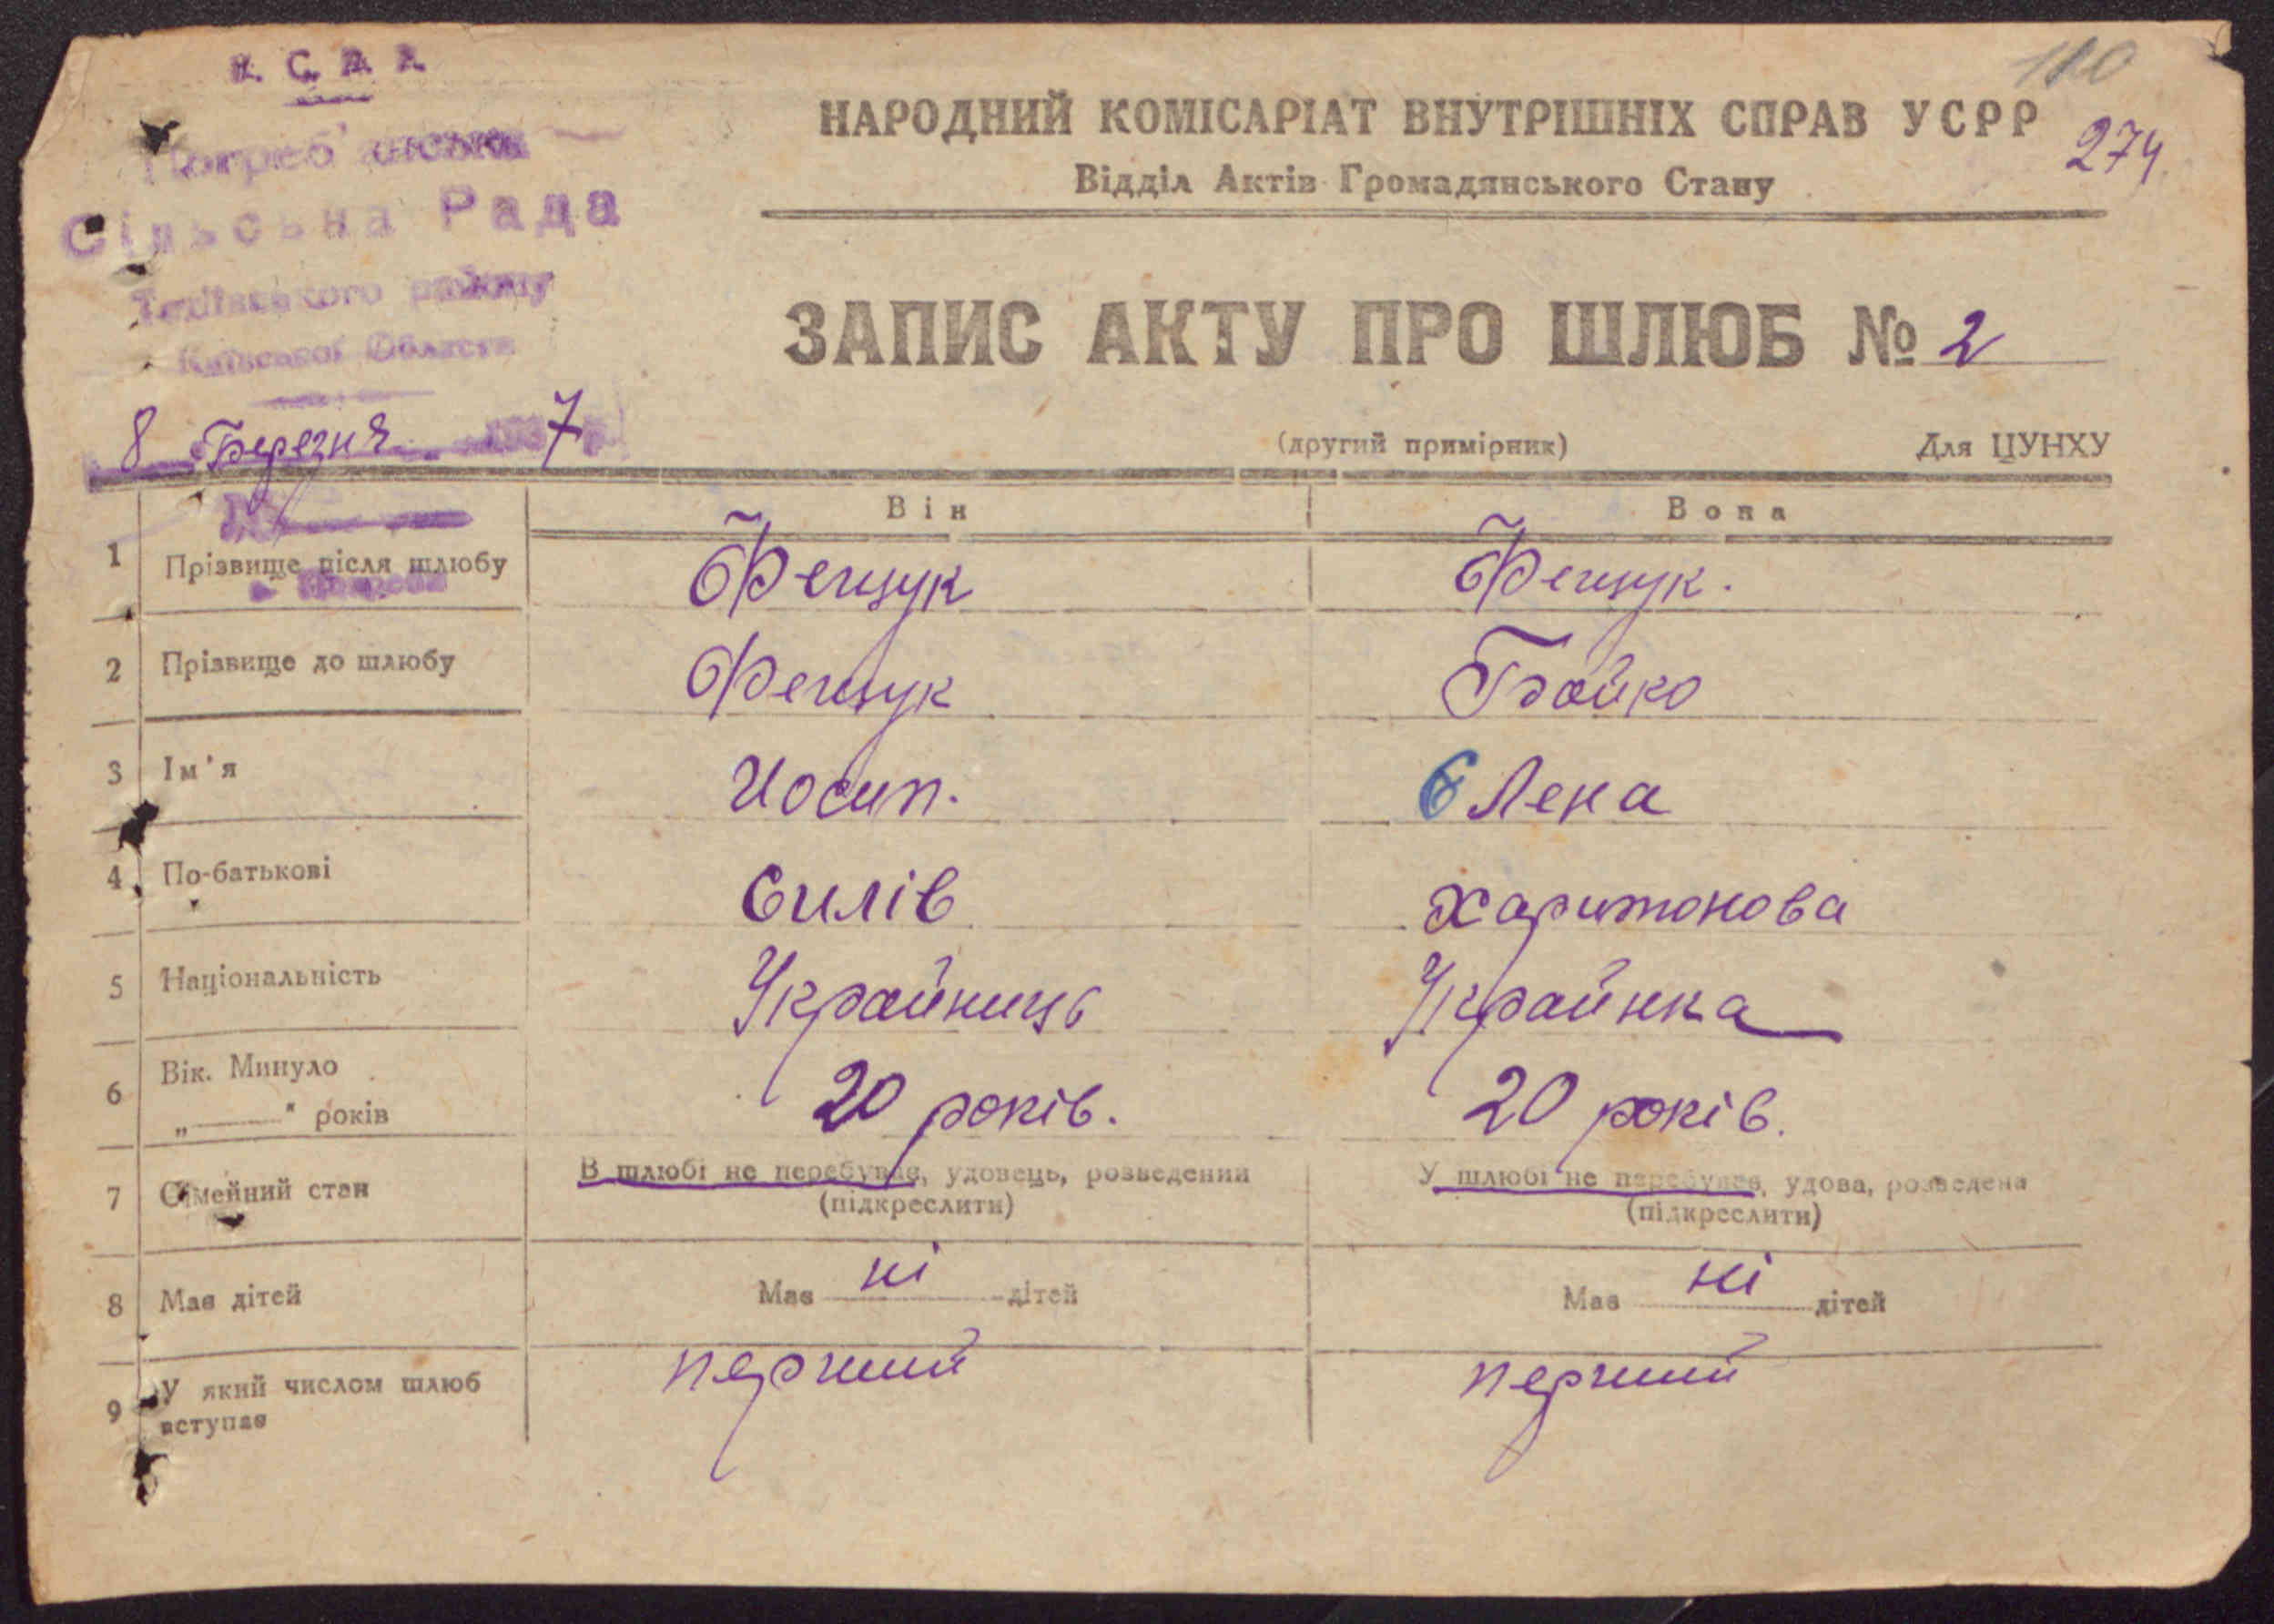 Н. С. Д. Д.
Погреб'янська
Сільська Рада
Тетіївського району
Київської Області
8 Березня 1937 р.
№
110
274
НАРОДНИЙ КОМІСАРІАТ ВНУТРІШНІХ СПРАВ УСРР
Відділ Актів Громадянського Стану
ЗАПИС АКТУ ПРО ШЛЮБ № 2
(другий примірник) Для ЦУНХУ
Він Вона
1 Прізвище після шлюбу Фещук Фещук.
2 Прізвище до шлюбу Фещук Бойко
3 Ім'я Йосип. Єлена
4 По-батькові Силів Харитонова
5 Національність Украйинць Украйнка
6 Вік. Минуло
„ " років 20 років. 20 років.
7 Сімейний стан В шлюбі не перебував, удовець, розведений У шлюбі не перебував, удова, розведена
(підкреслити) (підкреслити)
8 Має дітей Має ні дітей Має ні дітей
9 У який числом шлюб
вступає перший перший